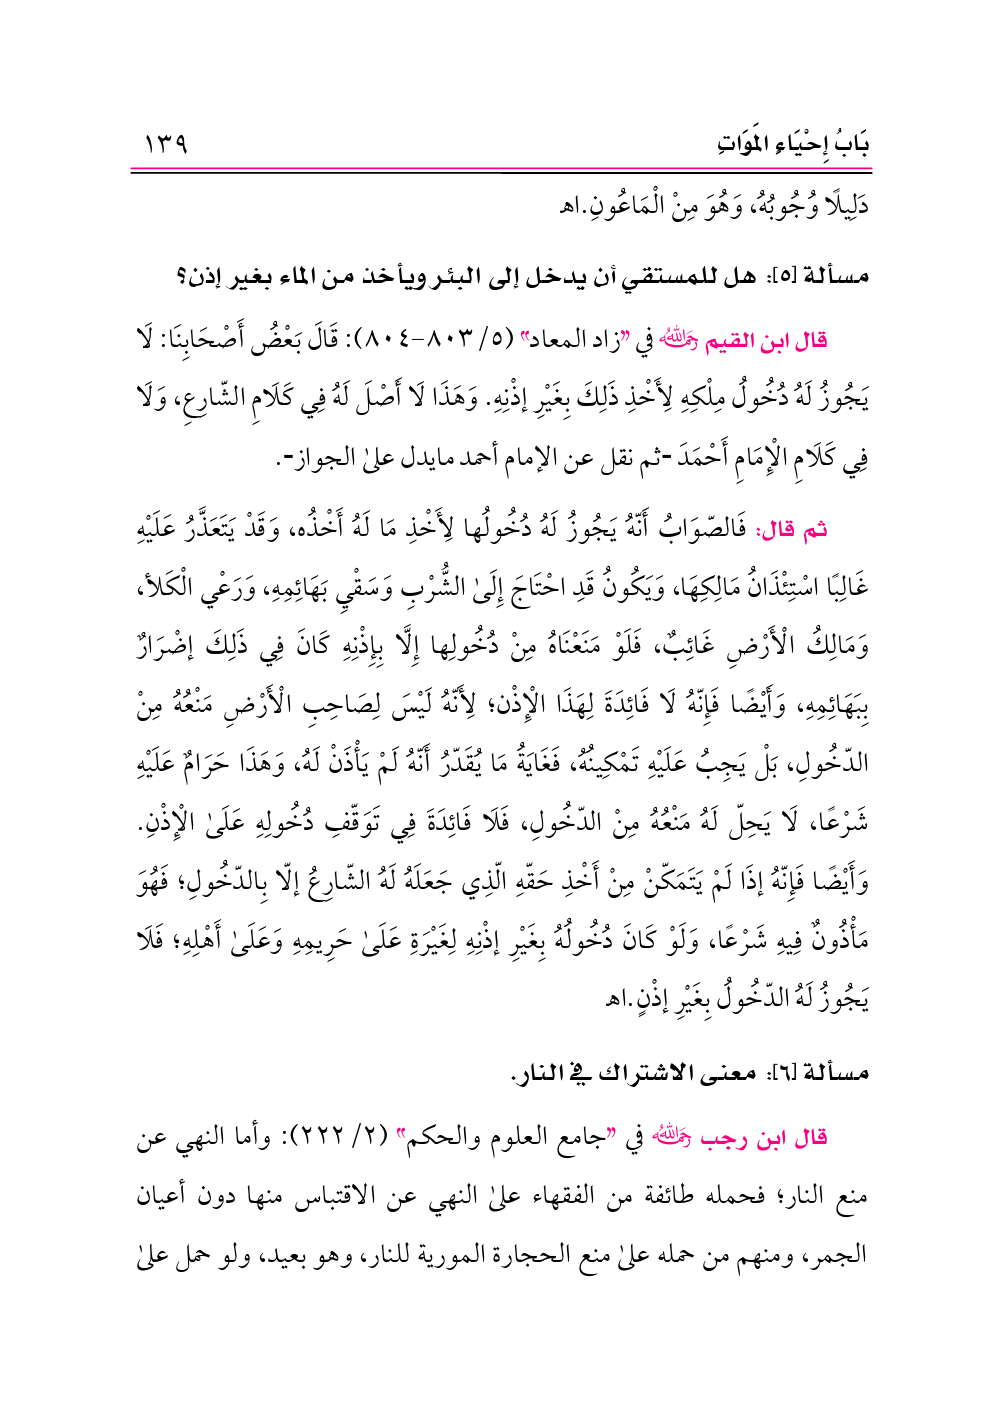 بَابُ إِحْيَاءِ المَوَاتِ ١٣٩
دَلِيلًا وُجُوبُهُ، وَهُوَ مِنْ الْمَاعُونِ.اهـ
مسألة [٥]: هل للمستقي أن يدخل إلى البئر ويأخذ من الماء بغير إذن؟
قال ابن القيم رحمه الله في ”زاد المعاد“ (٥/ ٨٠٣-٨٠٤): قَالَ بَعْضُ أَصْحَابِنَا: لَا
يَجُوزُ لَهُ دُخُولُ مِلْكِهِ لِأَخْذِ ذَلِكَ بِغَيْرِ إذْنِهِ. وَهَذَا لَا أَصْلَ لَهُ فِي كَلَامِ الشّارِعِ، وَلَا
فِي كَلَامِ الْإِمَامِ أَحْمَدَ -ثم نقل عن الإمام أحمد مايدل علىٰ الجواز-.
ثم قال: فَالصّوَابُ أَنّهُ يَجُوزُ لَهُ دُخُولُها لِأَخْذِ مَا لَهُ أَخْذُه، وَقَدْ يَتَعَذَّرُ عَلَيْهِ
غَالِبًا اسْتِئْذَانُ مَالِكِهَا، وَيَكُونُ قَدِ احْتَاجَ إِلَىٰ الشُّرْبِ وَسَقْيِ بَهَائِمِهِ، وَرَعْي الْكَلأ،
وَمَالِكُ الْأَرْضِ غَائِبٌ، فَلَوْ مَنَعْنَاهُ مِنْ دُخُولِها إِلَّا بِإِذْنِهِ كَانَ فِي ذَلِكَ إضْرَارٌ
بِبَهَائِمِهِ، وَأَيْضًا فَإِنّهُ لَا فَائِدَةَ لِهَذَا الْإِذْن؛ لِأَنّهُ لَيْسَ لِصَاحِبِ الْأَرْضِ مَنْعُهُ مِنْ
الدّخُولِ، بَلْ يَجِبُ عَلَيْهِ تَمْكِينُهُ، فَغَايَةُ مَا يُقَدّرُ أَنّهُ لَمْ يَأْذَنْ لَهُ، وَهَذَا حَرَامٌ عَلَيْهِ
شَرْعًا، لَا يَحِلّ لَهُ مَنْعُهُ مِنْ الدّخُولِ، فَلَا فَائِدَةَ فِي تَوَقّفِ دُخُولِهِ عَلَىٰ الْإِذْنِ.
وَأَيْضًا فَإِنّهُ إذَا لَمْ يَتَمَكّنْ مِنْ أَخْذِ حَقّهِ الّذِي جَعَلَهُ لَهُ الشّارِعُ إلّا بِالدّخُولِ؛ فَهُوَ
مَأْذُونٌ فِيهِ شَرْعًا، وَلَوْ كَانَ دُخُولُهُ بِغَيْرِ إذْنِهِ لِغَيْرَةِ عَلَىٰ حَرِيمِهِ وَعَلَىٰ أَهْلِهِ؛ فَلَا
يَجُوزُ لَهُ الدّخُولُ بِغَيْرِ إذْنٍ.اهـ
مسألة [٦]: معنى الاشتراك في النار.
قال ابن رجب رحمه الله في ”جامع العلوم والحكم“ (٢/ ٢٢٢): وأما النهي عن
منع النار؛ فحمله طائفة من الفقهاء علىٰ النهي عن الاقتباس منها دون أعيان
الجمر، ومنهم من حمله علىٰ منع الحجارة المورية للنار، وهو بعيد، ولو حمل علىٰ